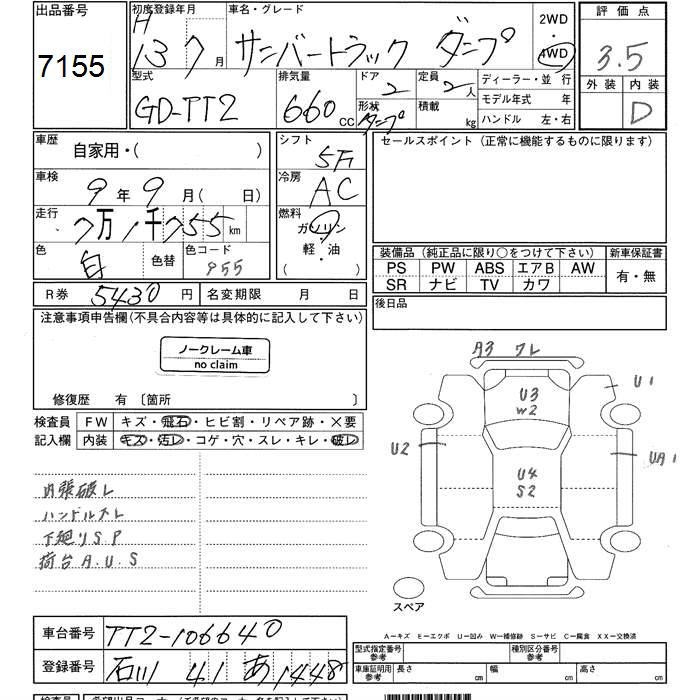 出品番号
7155
初度登録年月
H
13 7 月
車名・グレード
サンバートラック ダンプ
2WD
・
4WD
評価点
3.5
外装 内装
D
型式
GD-TT2
排気量
660 CC
ドア
2
形状
ダンプ
定員
2 人
積載
kg
ディーラー・並 行
モデル年式 年
ハンドル 左・右
車歴
自家用・( )
シフト
5F
車検
9 年 9 月( 日)
冷房
AC
走行
7万1千755 km
燃料
ガソリン
軽・油
( )
色
白
色替
色コード
955
R券 5430 円
名変期限 月 日
セールスポイント (正常に機能するものに限ります)
装備品 (純正品に限り○をつけて下さい)
新車保証書
PS PW ABS エアB AW
SR ナビ TV カワ
有・無
後日品
注意事項申告欄(不具合内容等は具体的に記入して下さい)
ノークレーム車
no claim
修復歴 有 〔箇所 〕
検査員
記入欄
FW キズ・飛石・ヒビ割・リペア跡・×要
内装 キズ・汚レ・コゲ・穴・スレ・キレ・破レ
内張破レ
ハンドルスレ
下廻りS.P
荷台A.U.S
A3 ワレ
U3
W2
U1
U2
U4
S2
UA1
スペア
A−キズ E−エクボ U−凹み W−補修跡 S−サビ C−腐食 XX−交換済
車台番号
TT2-106640
登録番号
石川 41 あ 1448
型式指定番号
参考
種別区分番号
参考
車庫証明用
参考
長さ
cm
幅
cm
高さ
cm